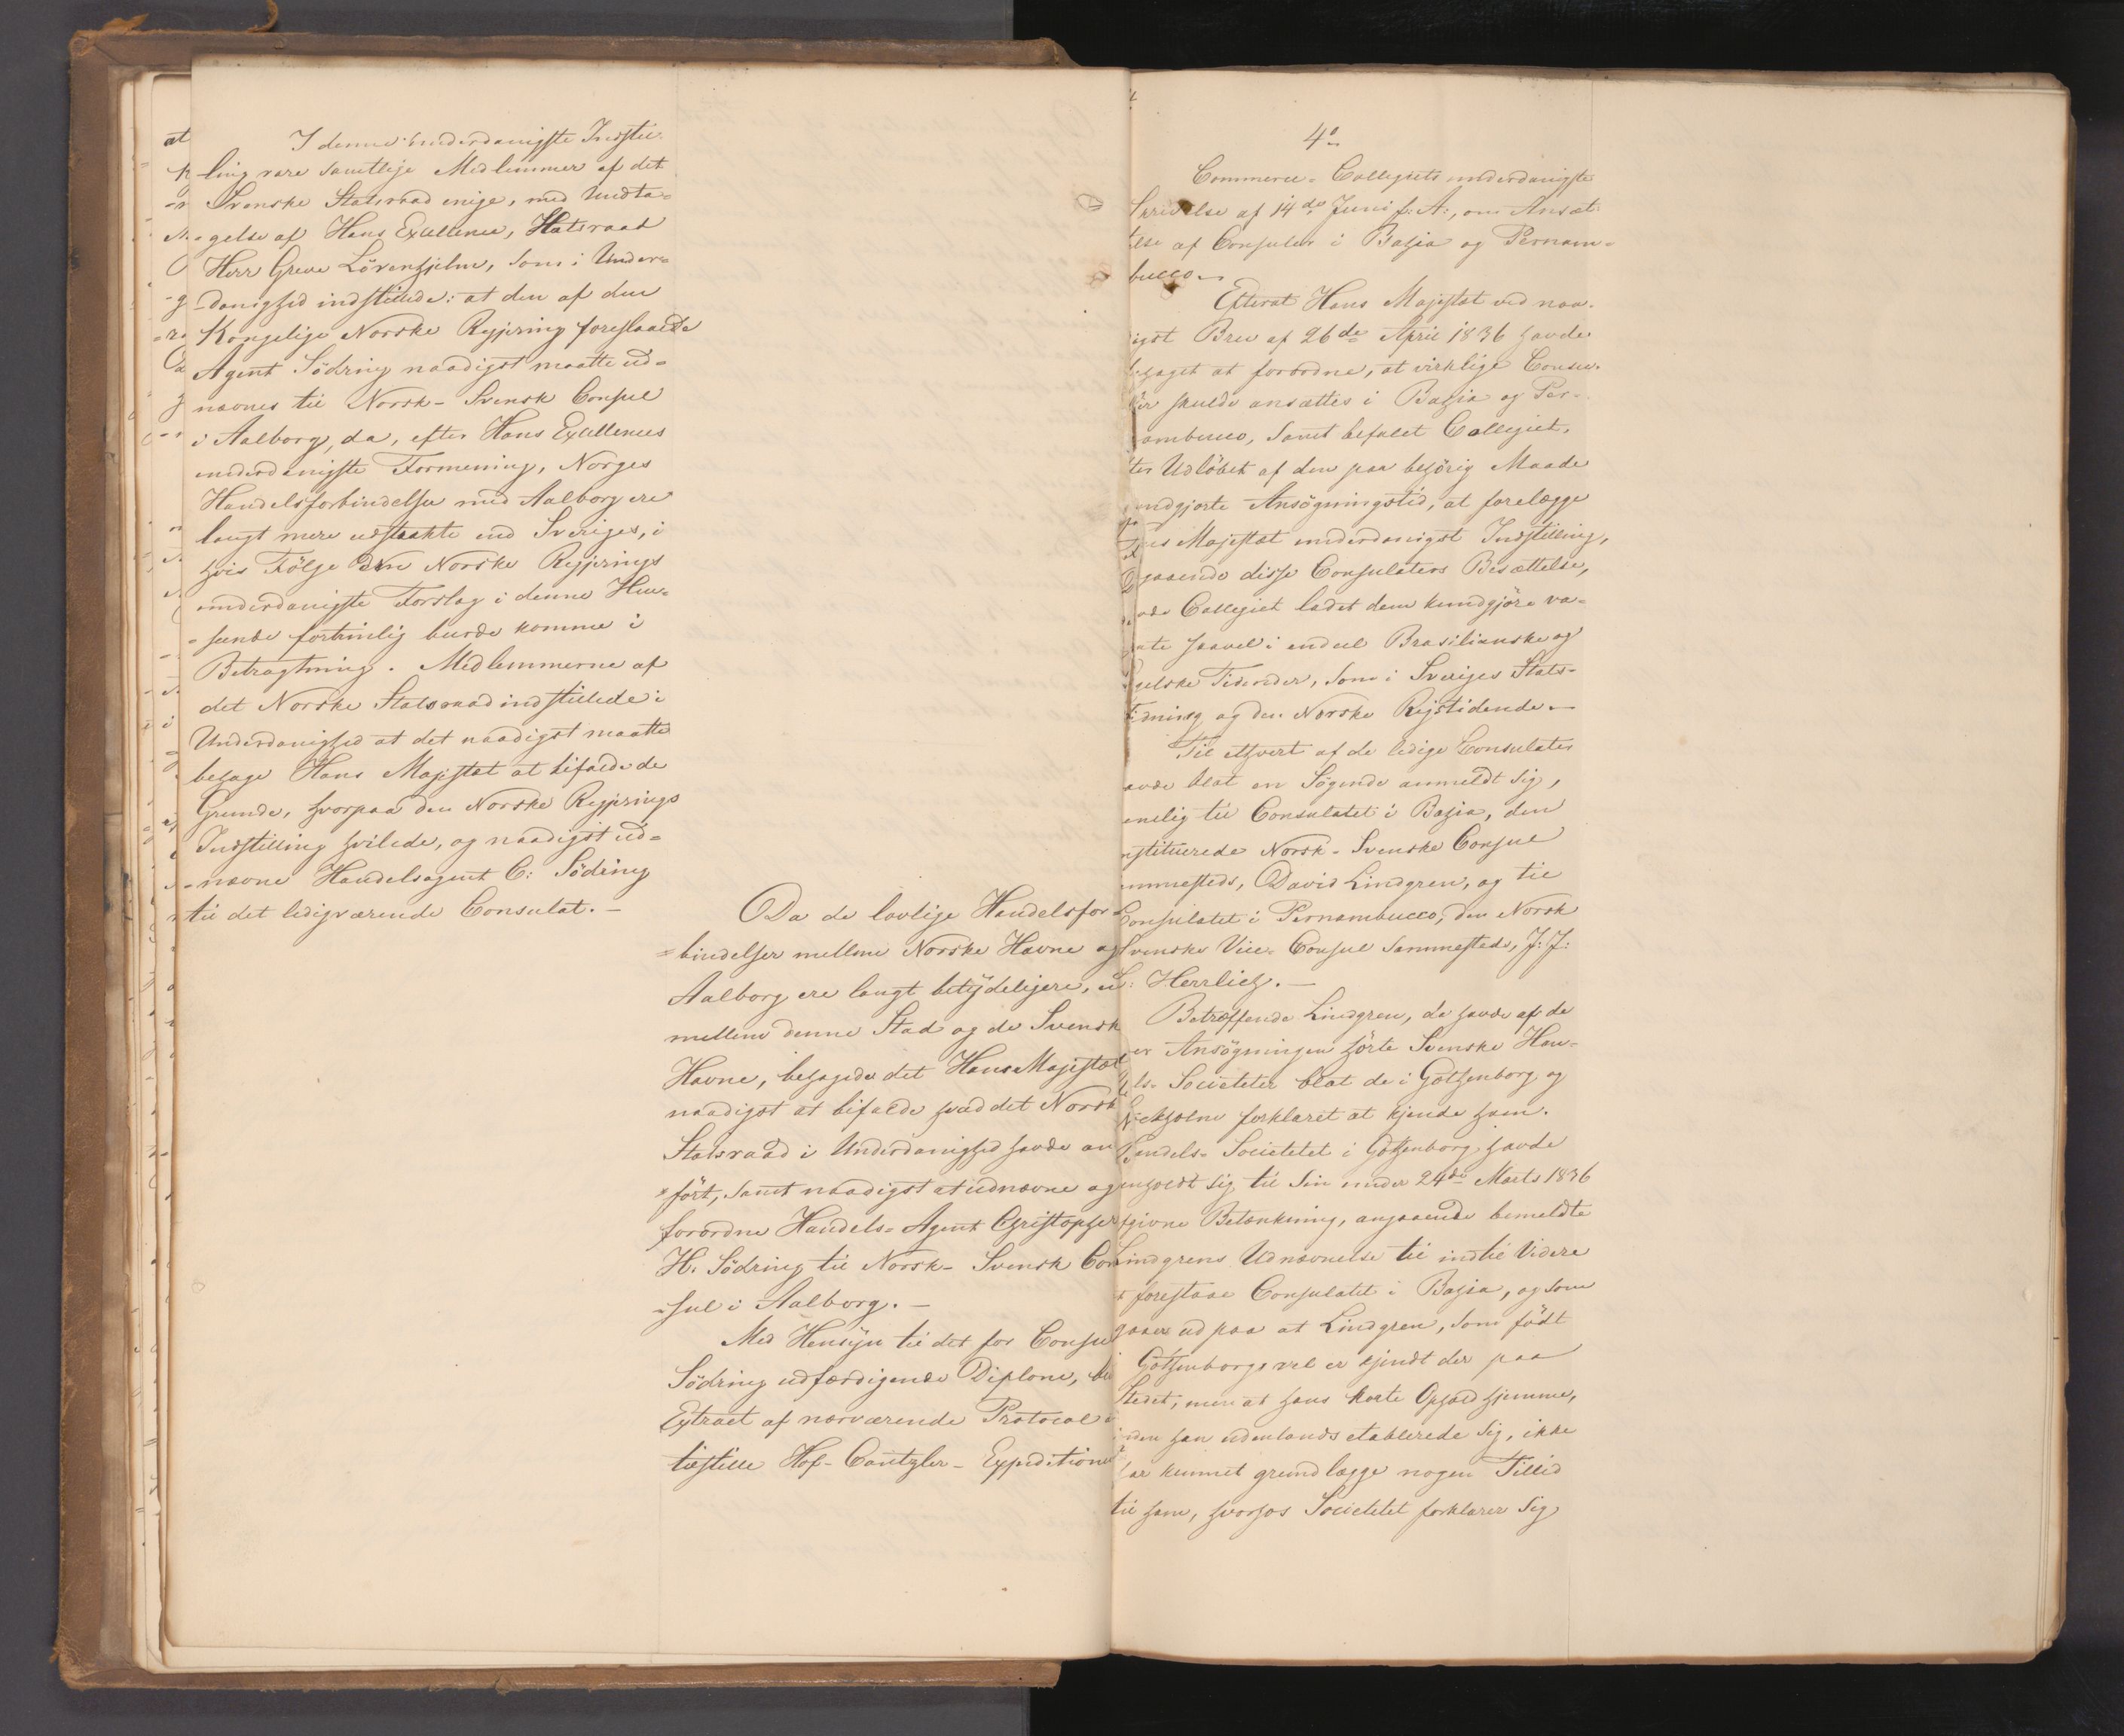 I denne underdanigste Indstil-
ling vare samtlige Medlemmer af det
Svenske Statsraad enige, med Undta-
gelse af Hans Excellence, Statsraad
Herr Greve Lövenhjelm, som i Under-
danighed indstillede: at den af den
Kongelige Norske Regjering foreslaaede
Agent Södring naadigst maatte ud-
nævnes til Norsk-Svensk Consul
i Aalborg, da, efter Hans Excellences
underdanigste Formening, Norges
Handelsforbindelser med Aalborg ere
langt mere udstrakte end Sveriges, i
hvis Følge den Norske Regjerings
underdanigste Forslag i denne Hen-
seende fortrinlig burde komme i
Betragtning. Medlemmerne af
det Norske Statsraad indstillede i
Underdanighed at det naadigst maatte
behage Hans Majestæt at bifalde de
Grunde, hvorpaa den Norske Regjerings
Indstilling hvilede, og naadigst ud-
nævne Handelsagent C: Södring
til det ledigværende Consulat.-
Da de lovlige Handelsfor-
bindelser mellem Norske Havne og
Aalborg ere langt betydeligere, en
mellem denne Stad og de Svensk
Havne, behagede det Hans Majestæt
naadigst at bifalde hvad det Norsk
Statsraad i Underdanighed havde an
ført, samt naadigst at udnævne og
forordne Handels-Agent Christopher
H. Södring til Norsk-Svensk Con
sul i Aalborg.-
Med Hensyn til det for Consul
Södring udfærdigende Diplom,
Extract af nærværende Protocol
tilstille Hof-Cantzler-Expeditionen
4º
Commerce-Collegiets underdanigste
Skrivelse af 14de Juni f: A:, om Ansæt-
telse af Consuler i Bahia og Pernam-
bucco.-
Efterat Hans Majestæt ved naa-
digst Brev af 26de April 1836 havde
behaget at forordne, at virkelige Consu-
ler skulde ansættes i Bahia og Per-
nambucco, samt befalet Collegiet,
ter Udløbet af den paa behørig Maade
undgjorte Ansøgningstid, at forelægge
ns Majestæt underdanigst Indstilling,
gaaende disse Consulaters Besættelse,
avde Collegiet ladet dem kundgjøre va-
nte saavel i endeel Brasilianske og
gelske Tidender, som i Sveriges Stats-
Tidning og den Norske Rigstidende.-
Til ethvert af de ledige Consulater
avde blot en Søgende anmeldt sig,
emlig til Consulatet i Bahia, den
nstituerede Norsk-Svenske Consul
ammesteds, David Lindgren, og til
Consulatet i Pernambucco, den Norsk
Svenske Vice-Consul sammesteds, J: J:
Herrlich.-
Betræffende Lindgren, da havde af de
er Ansøgningen hørte Svenske Han-
dels-Societeter blot de i Gothenborg og
Stockholm forklaret at kjende ham.
Handels-Societetet i Gothenborg havde
enholdt sig til sin under 24de Marts 1836
fgivne Betænkning, angaaende bemeldte
Lindgrens Udnævnelse til indtil Videre
t forestaae Consulatet i Bahia, og som
gaaer ud paa at Lindgren, som født
Gothenborger vel er kjendt der paa
Stedet, men at hans korte Ophold hjemme,
inden han udenlands etablerede sig, ikke
har kunnet grundlægge nogen Tillid
til ham, hvorhos Societetet forklarer sig